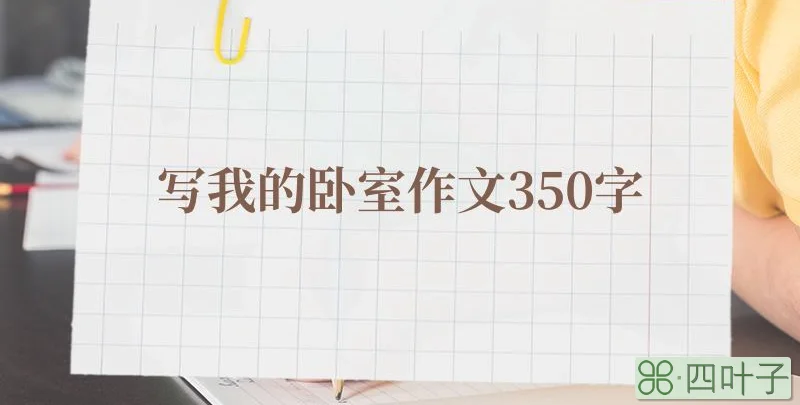 写我的卧室作文350字
四叶子